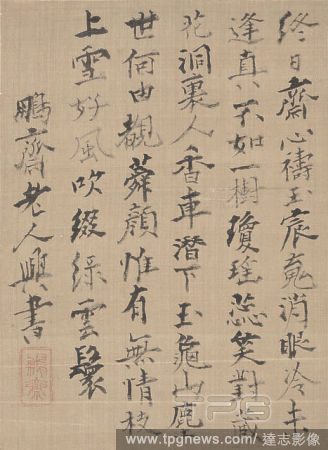 終日齋心禱玉宸魂消眼冷未
逢真不如一樹瓊瑤蕊笑對藏
花洞裏人香車潛下玉龜山塵
世何由覩蕣顏惟有無情枝
上雪好風吹綴綠雲鬟
鵬齋老人興書
TPG
www.tpgnews.com / 達志影像